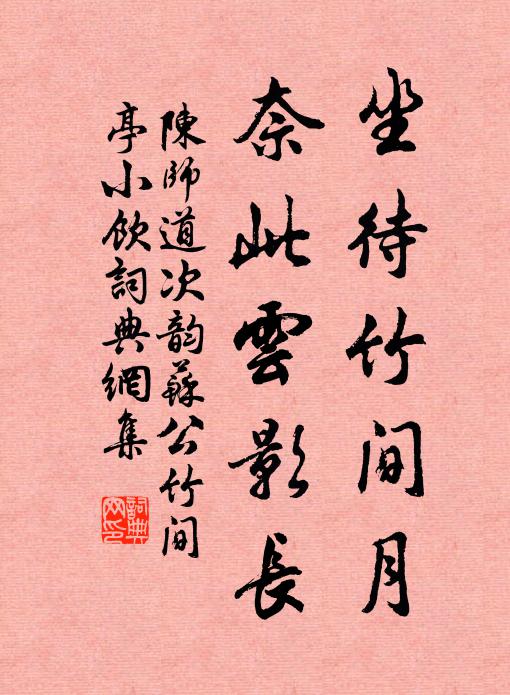 坐待竹间月
奈此雲影長
陳師道次韵蘇公竹间
亭小飲詞典網集
詞典
网印